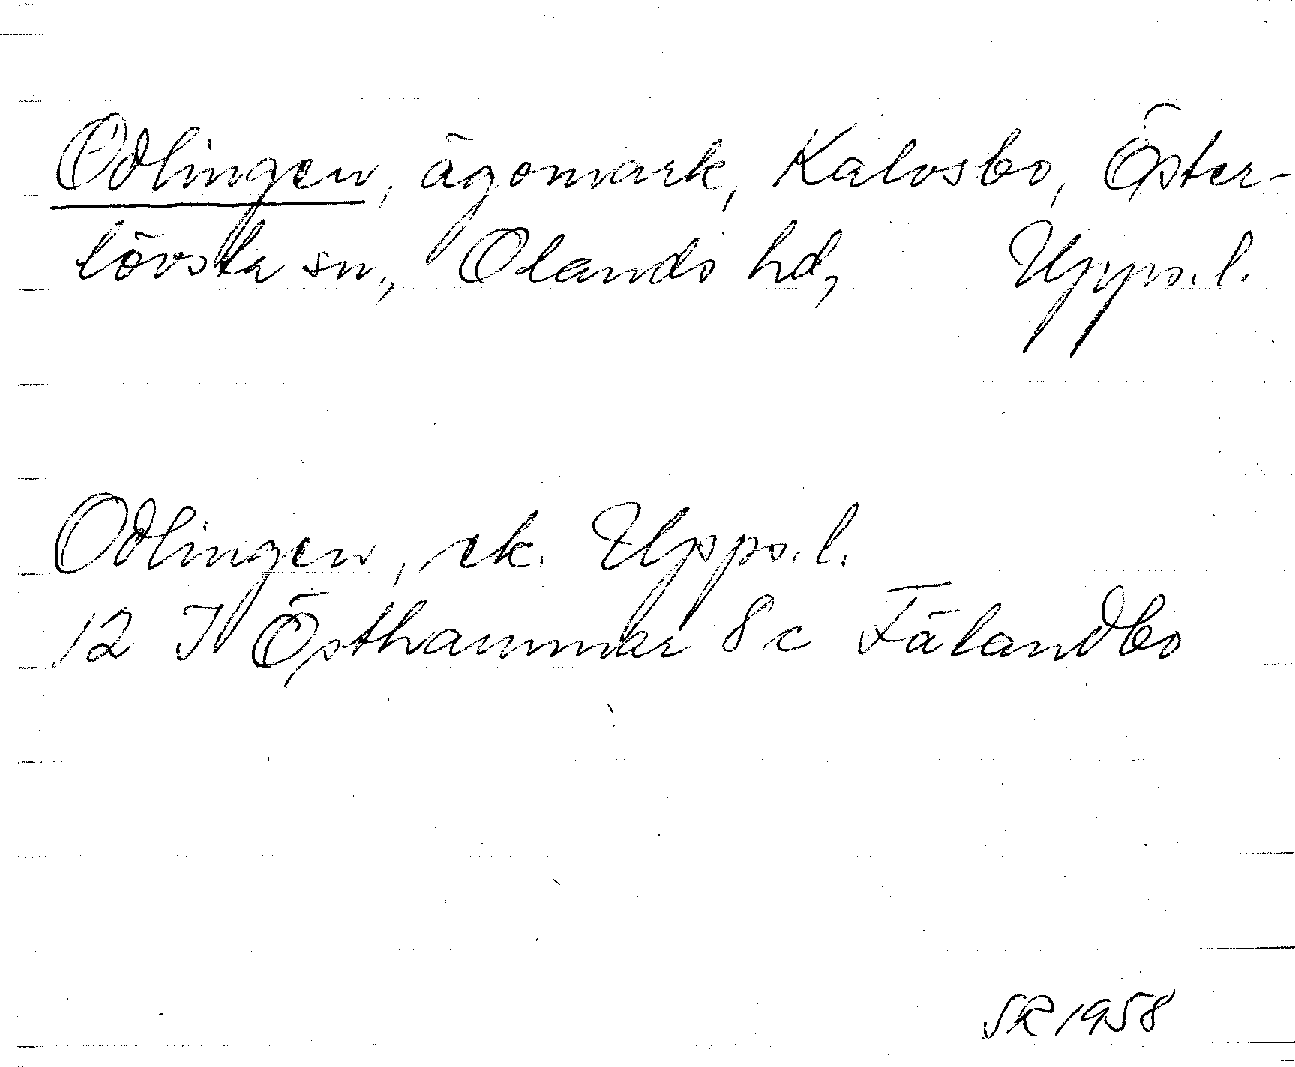 Odlingen, ägomark, Kalvsbo, Öster-
lövsta sn., Olands hd, Upps.l.
Odlingen, ek. Upps.l.
12 I Östhammar 8c Fälandbo
SR 1958